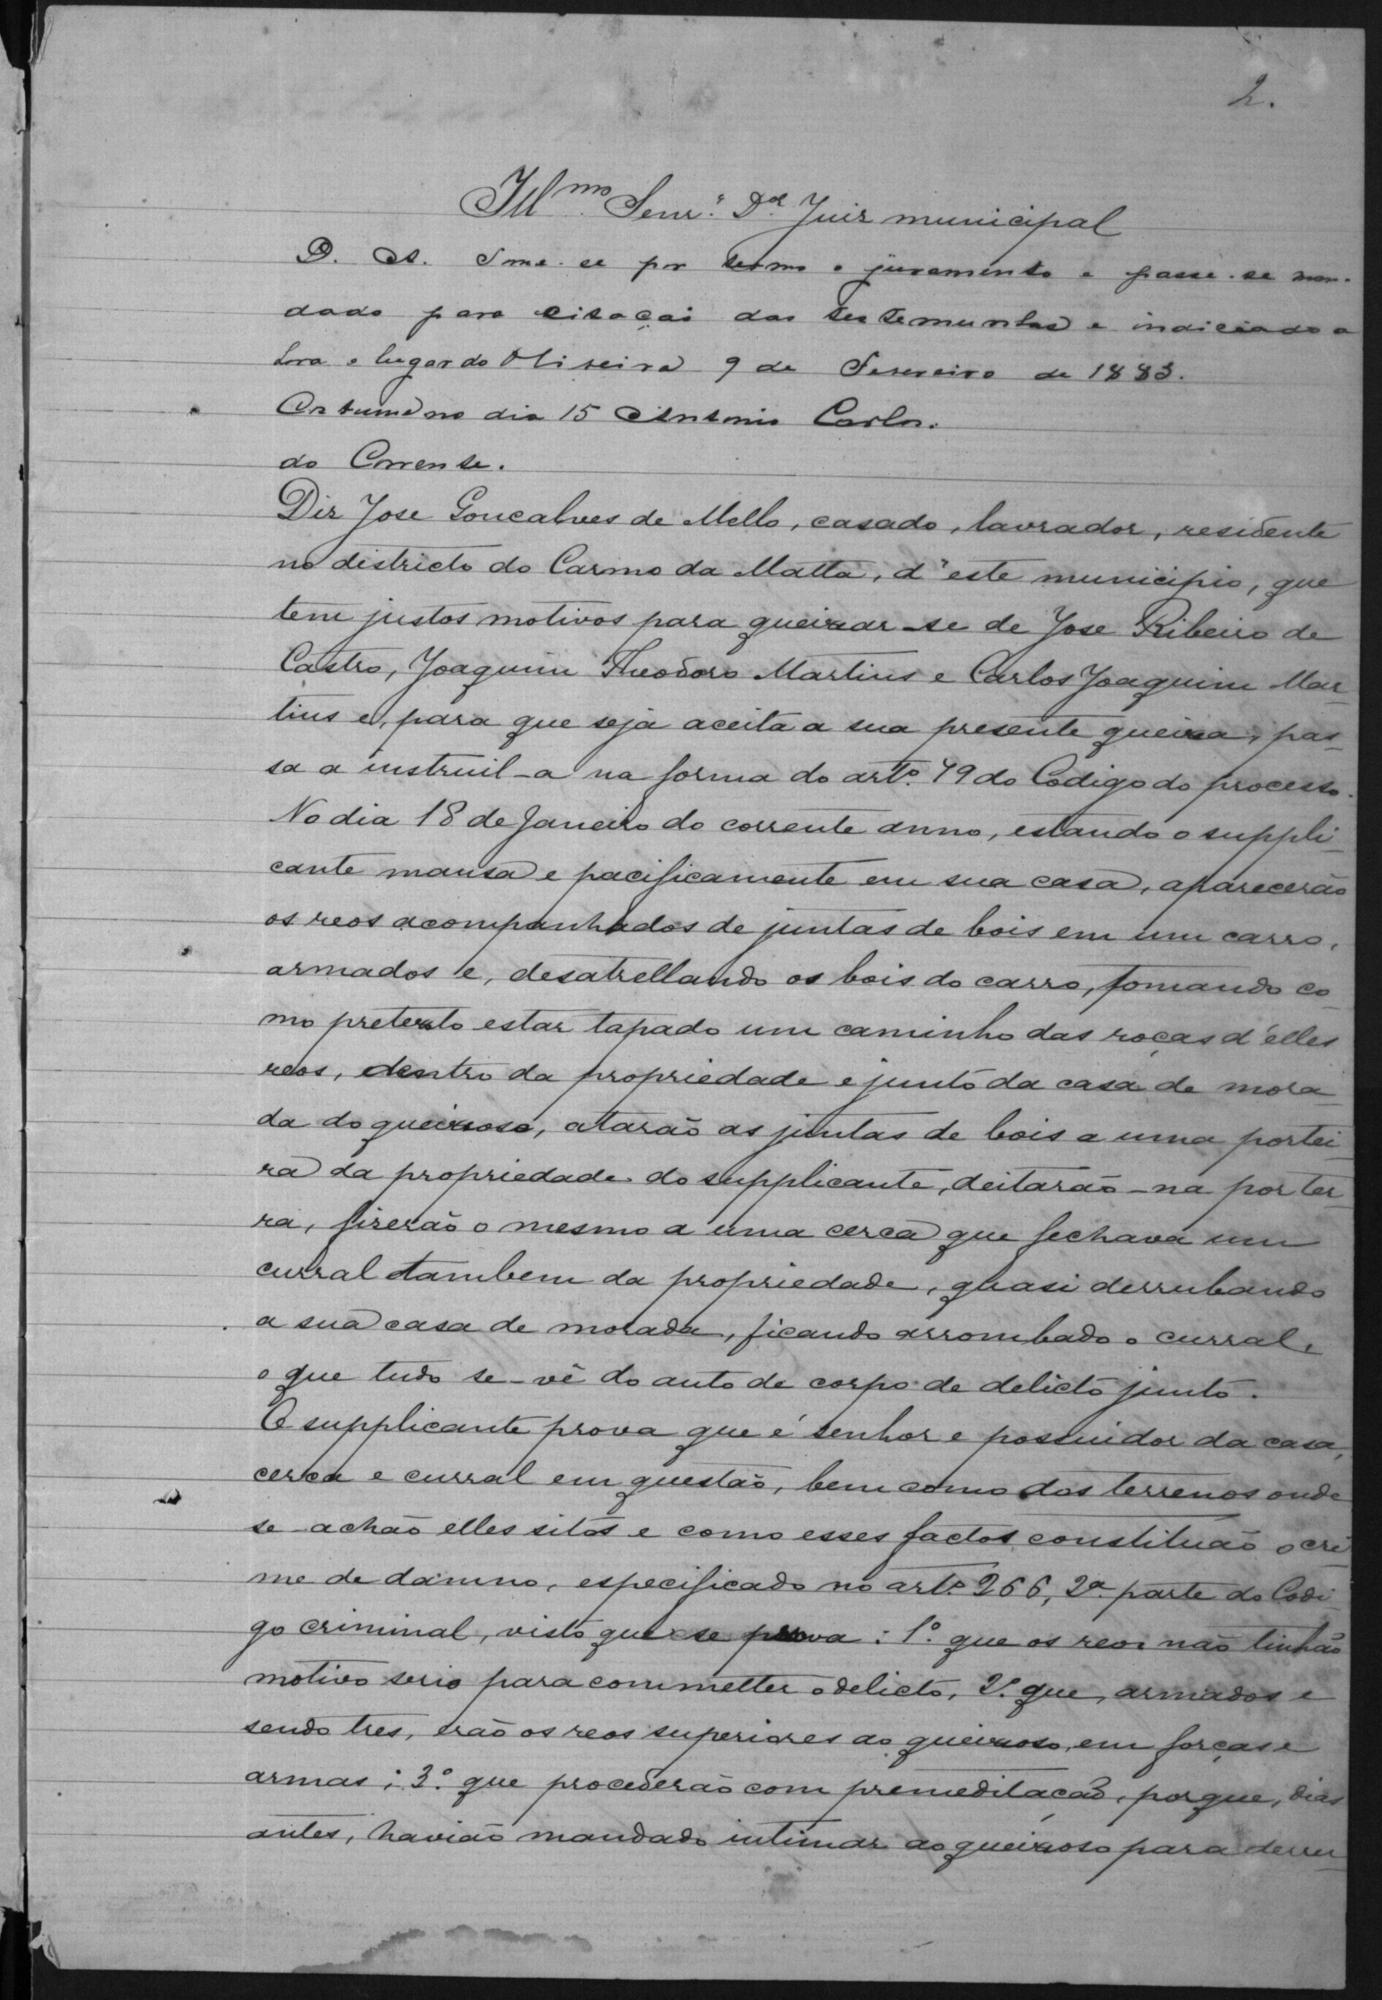 2.
Ill.mo Senr. Dor. Juiz municipal
D. A. Tome-se por termo o juramento e passe-se man-
dado para citação das testemunhas e indiciado a
hora e lugar do Oliveira 9 de Fevereiro de 1883.
Costume no dia 15 Antonio Carlos.
do Corrente.
Diz Jose Goncalves de Mello, casado, lavrador, residente
no districto do Carmo da Matta, d'este municipio, que
tem justos motivos para queixar-se de Jose Ribeiro de
Castro, Joaquim Theodoro Martins e Carlos Joaquim Mar-
tins e, para que seja aceita a sua presente queixa, pas-
sa a instruil-a na forma do art.º 79 do Codigo do processo.
No dia 18 de Janeiro do corrente anno, estando o suppli-
cante mansa e pacificamente em sua casa, aparecerão
os reos acompanhados de juntas de bois em um carro,
armados e, desatrellando os bois do carro, tomando co-
mo pretexto estar tapado um caminho das roças d'elles
reos, dentro da propriedade e junto da casa de mora-
da do queixoso, atarão as juntas de bois a uma portei-
ra da propriedade do supplicante, deitarão-na por ter-
ra, fizerão o mesmo a uma cerca que fechava um
curral tambem da propriedade, quasi derrubando
a sua casa de morada, ficando arrombado o curral,
o que tudo se-vê do auto de corpo de delicto junto.
O supplicante prova que é senhor e possuidor da casa,
cerca e curral em questão, bem como dos terrenos onde
se achão elles sitos e como esses factos constituão o cri-
me de damno, especificado no art.º 266, 2ª parte do Codi-
go criminal, visto que se prova: 1º que os reos não tinhão
motivo serio para commetter o delicto, 2º que, armados e
sendo tres, erão os reos superiores ao queixoso, em forças e
armas; 3º que procederão com premeditação, porque, dias
antes, havião mandado intimar ao queixoso para derru-